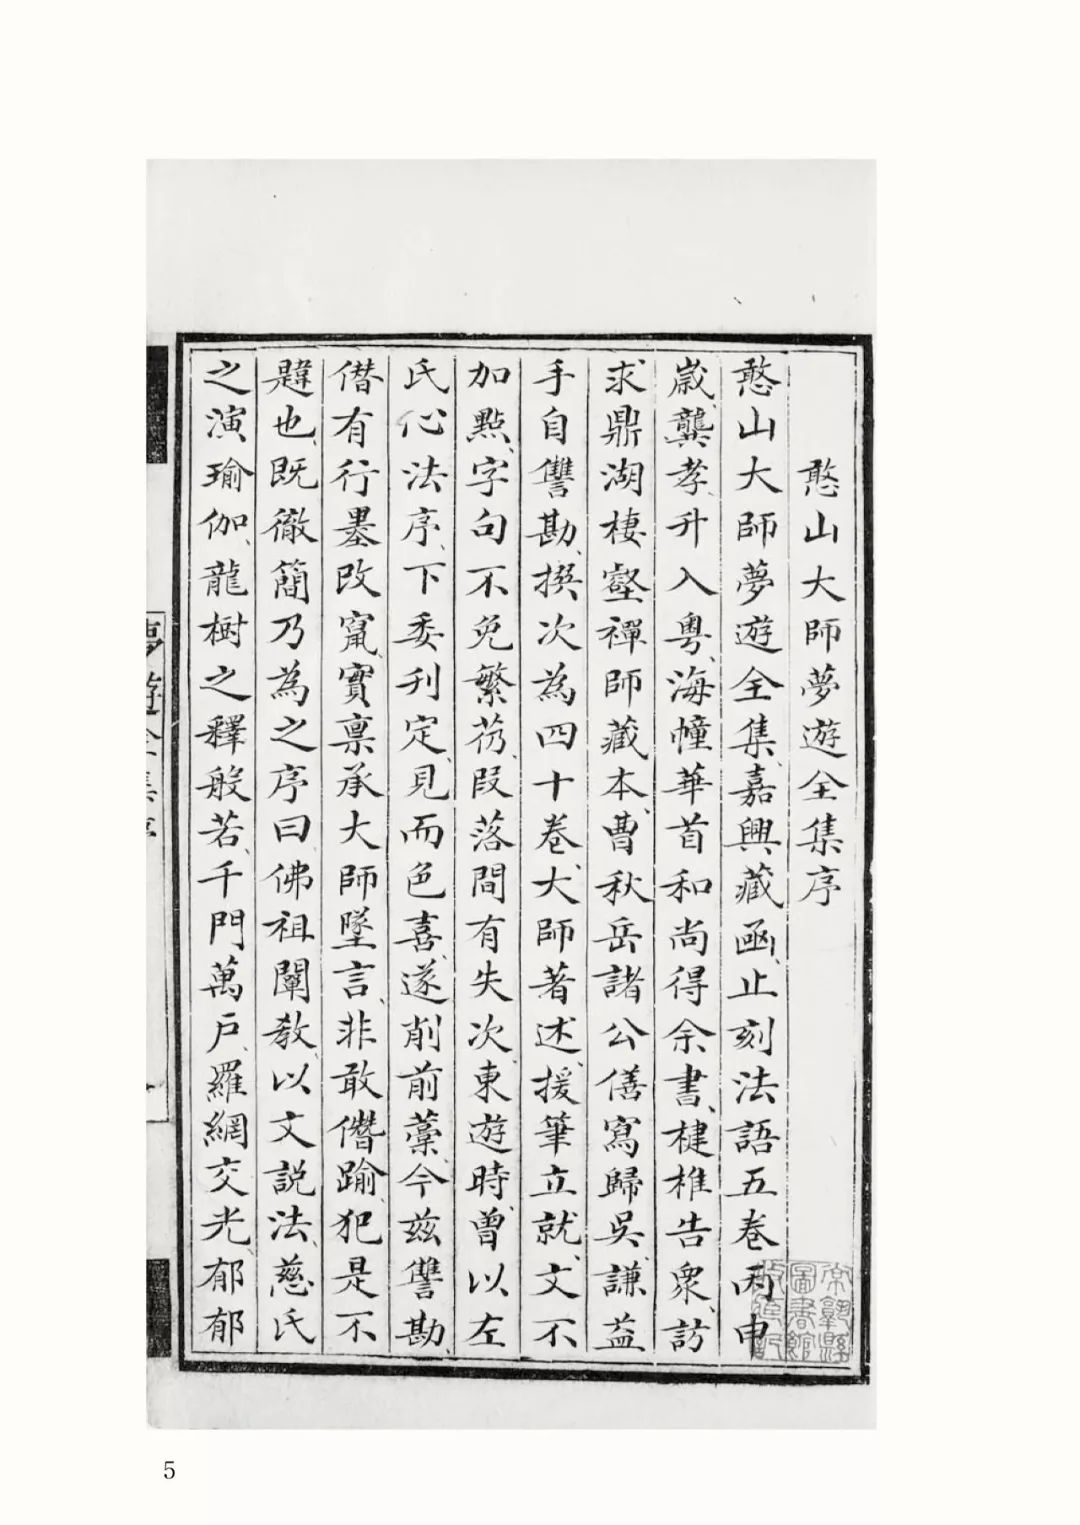 憨山大師夢遊全集序
憨山大師夢遊全集嘉興藏函止刻法語五卷丙申
歲龔孝升入粤海幢華首和尚得余書楗椎告衆訪
求鼎湖棲壑禪師藏本曹秋岳諸公僐寫歸吳謙益
手自讐勘撰次為四十卷大師著述援筆立就文不
加點字句不免繁芿段落間有失次東遊時曾以左
氏心法序下委刊定見而色喜遂削前藁今兹讐勘
僭有行墨改竄實稟承大師墜言非敢僭踰犯是不
韙也既徹簡乃為之序曰佛祖闡教以文説法慈氏
之演瑜伽龍樹之釋般若千門萬户羅網交光郁郁
夢遊全集序
常熟縣
圖書館
5